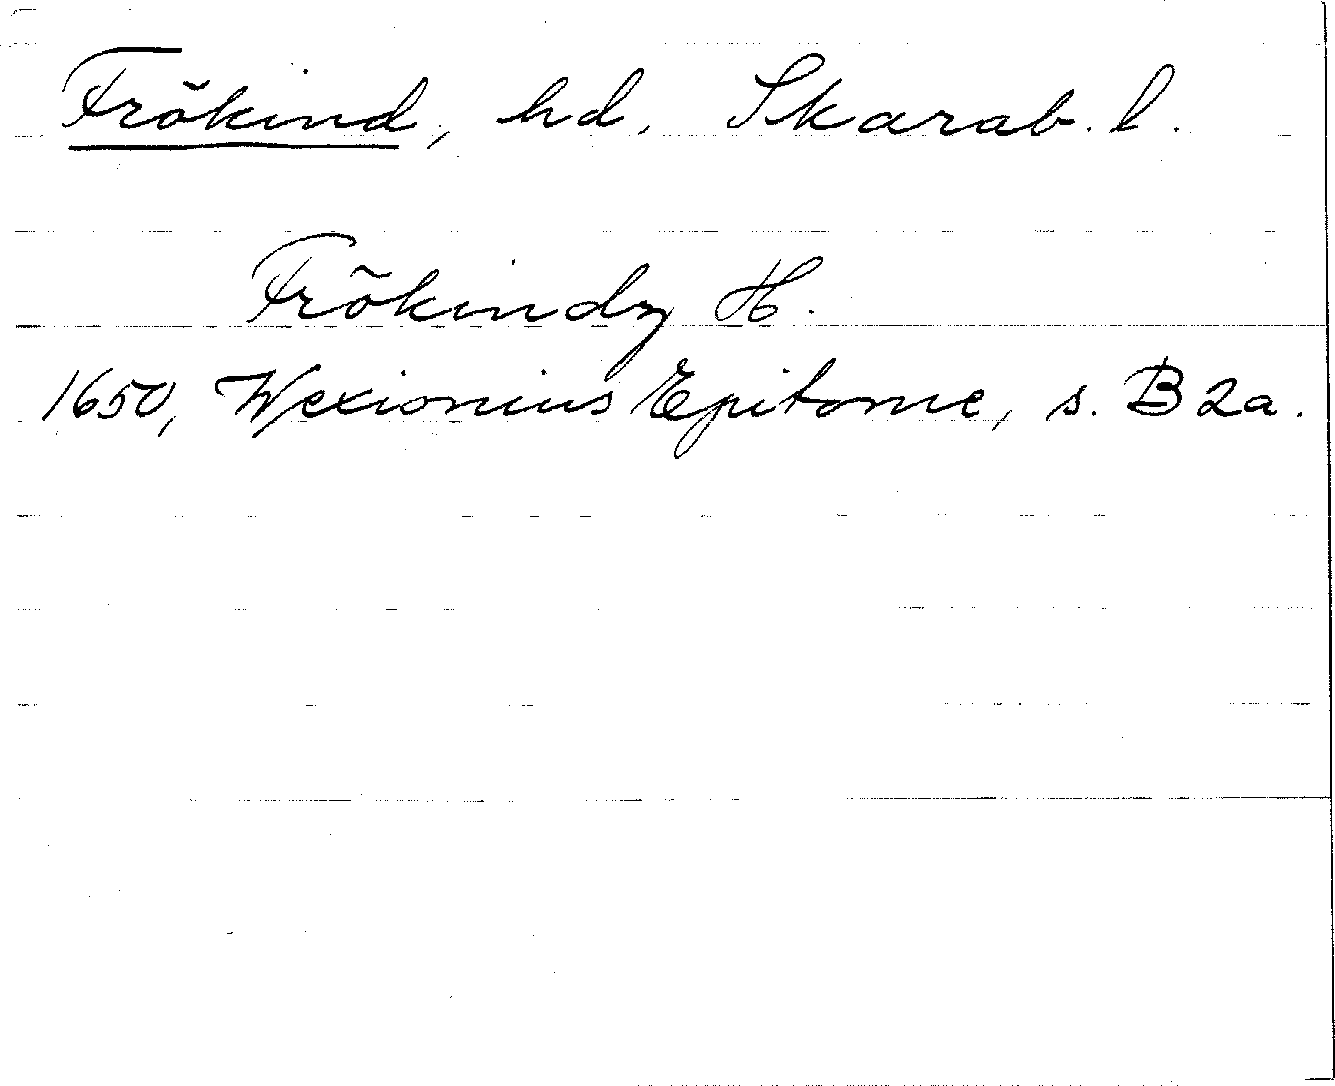 Frökind, hd, Skarab. l.
Frökindz H.
1650, Wexionius Epitome, s. B2a.